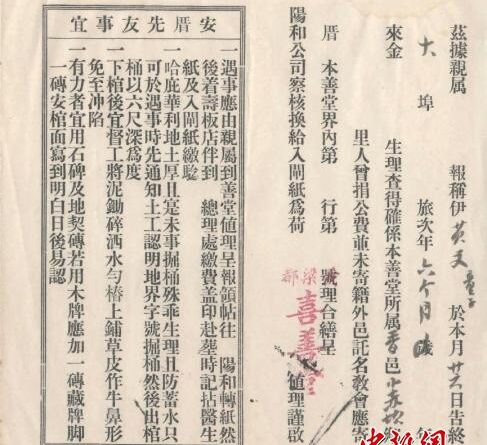 茲據親属 報稱伊 於本月 日告終
大埠 旅次年 六个月
來金 生理查得確係本善堂所属 香 邑
里人曾捐公費並未寄籍外邑託名敎會應寄
厝 本善堂界內第 行第 號理合繕呈
陽和公司察核換給入閘紙為荷
喜善堂 值理謹啟
安厝先友事宜
一遇事應由親属到善堂値理呈報領帖往 陽和轉紙然
後着壽板店伴到 總理處繳費盖印赴塋時記拈醫生
紙及入閘紙繳驗
一哈庇華利地土厚且寔未事掘桶殊乖生理且防蓄水只
可於遇事時先通知土工認明地界字號掘桶然後出棺
桶以六尺深為度
一下棺後宜督工將泥鋤碎洒水勻樁上鋪草皮作牛鼻形
免至冲陷
一有力者宜用石碑及地契磚若用木牌應加一磚藏牌脚
一磚安棺面寫到明白日後易認